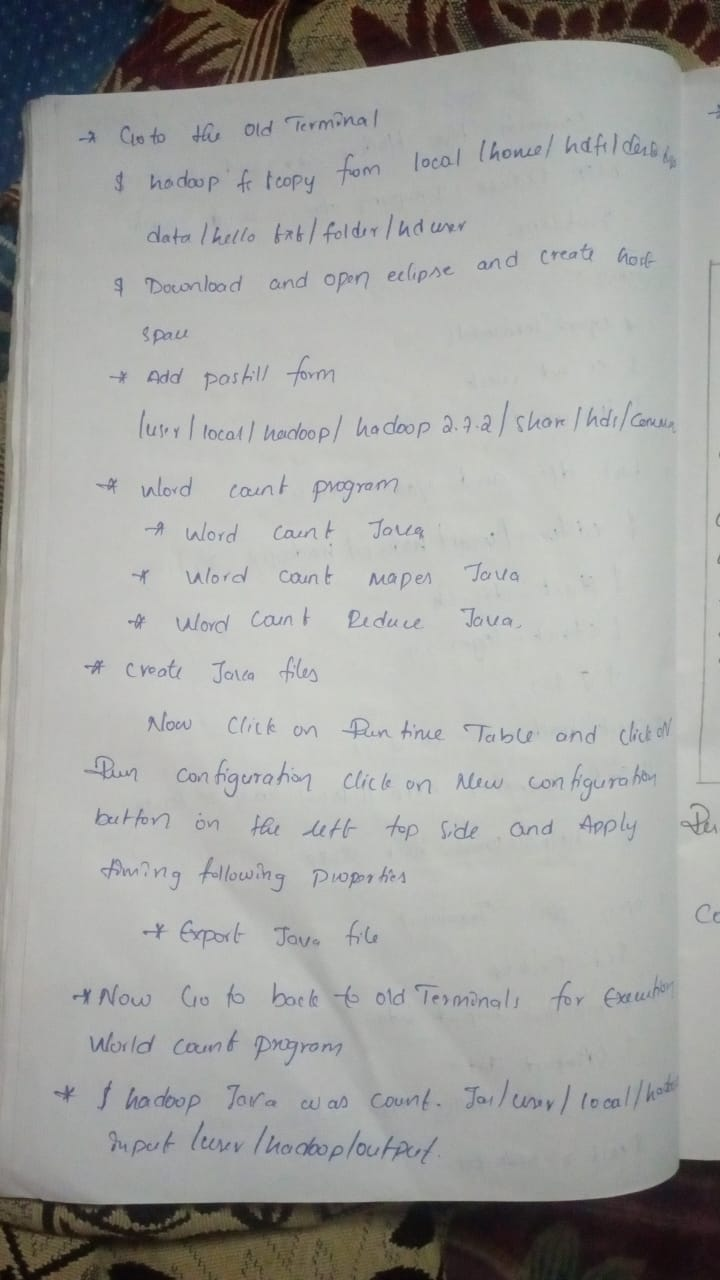 → Go to the old Terminal
$ hadoop fs tcopy from local /home/ hdfs/desktop
data / hello txt / folder / hd user
$ Download and open eclipse and create host
space
* Add postill form
/user / local / hadoop / hadoop 2.7.2 / share / hds / common
* Word count program
* Word count Java
* Word count maper Java
* Word count Reduce Java.
* create Java files
Now click on Run time Table and click on
Run configuration click on New configuration
button on the left top side and Apply
timing following properties
* Export Java file
* Now Go to back to old Terminals for Execution
World count program
* $ hadoop Java was count. Jar/user / local /
input /user / hadoop/output.
Co